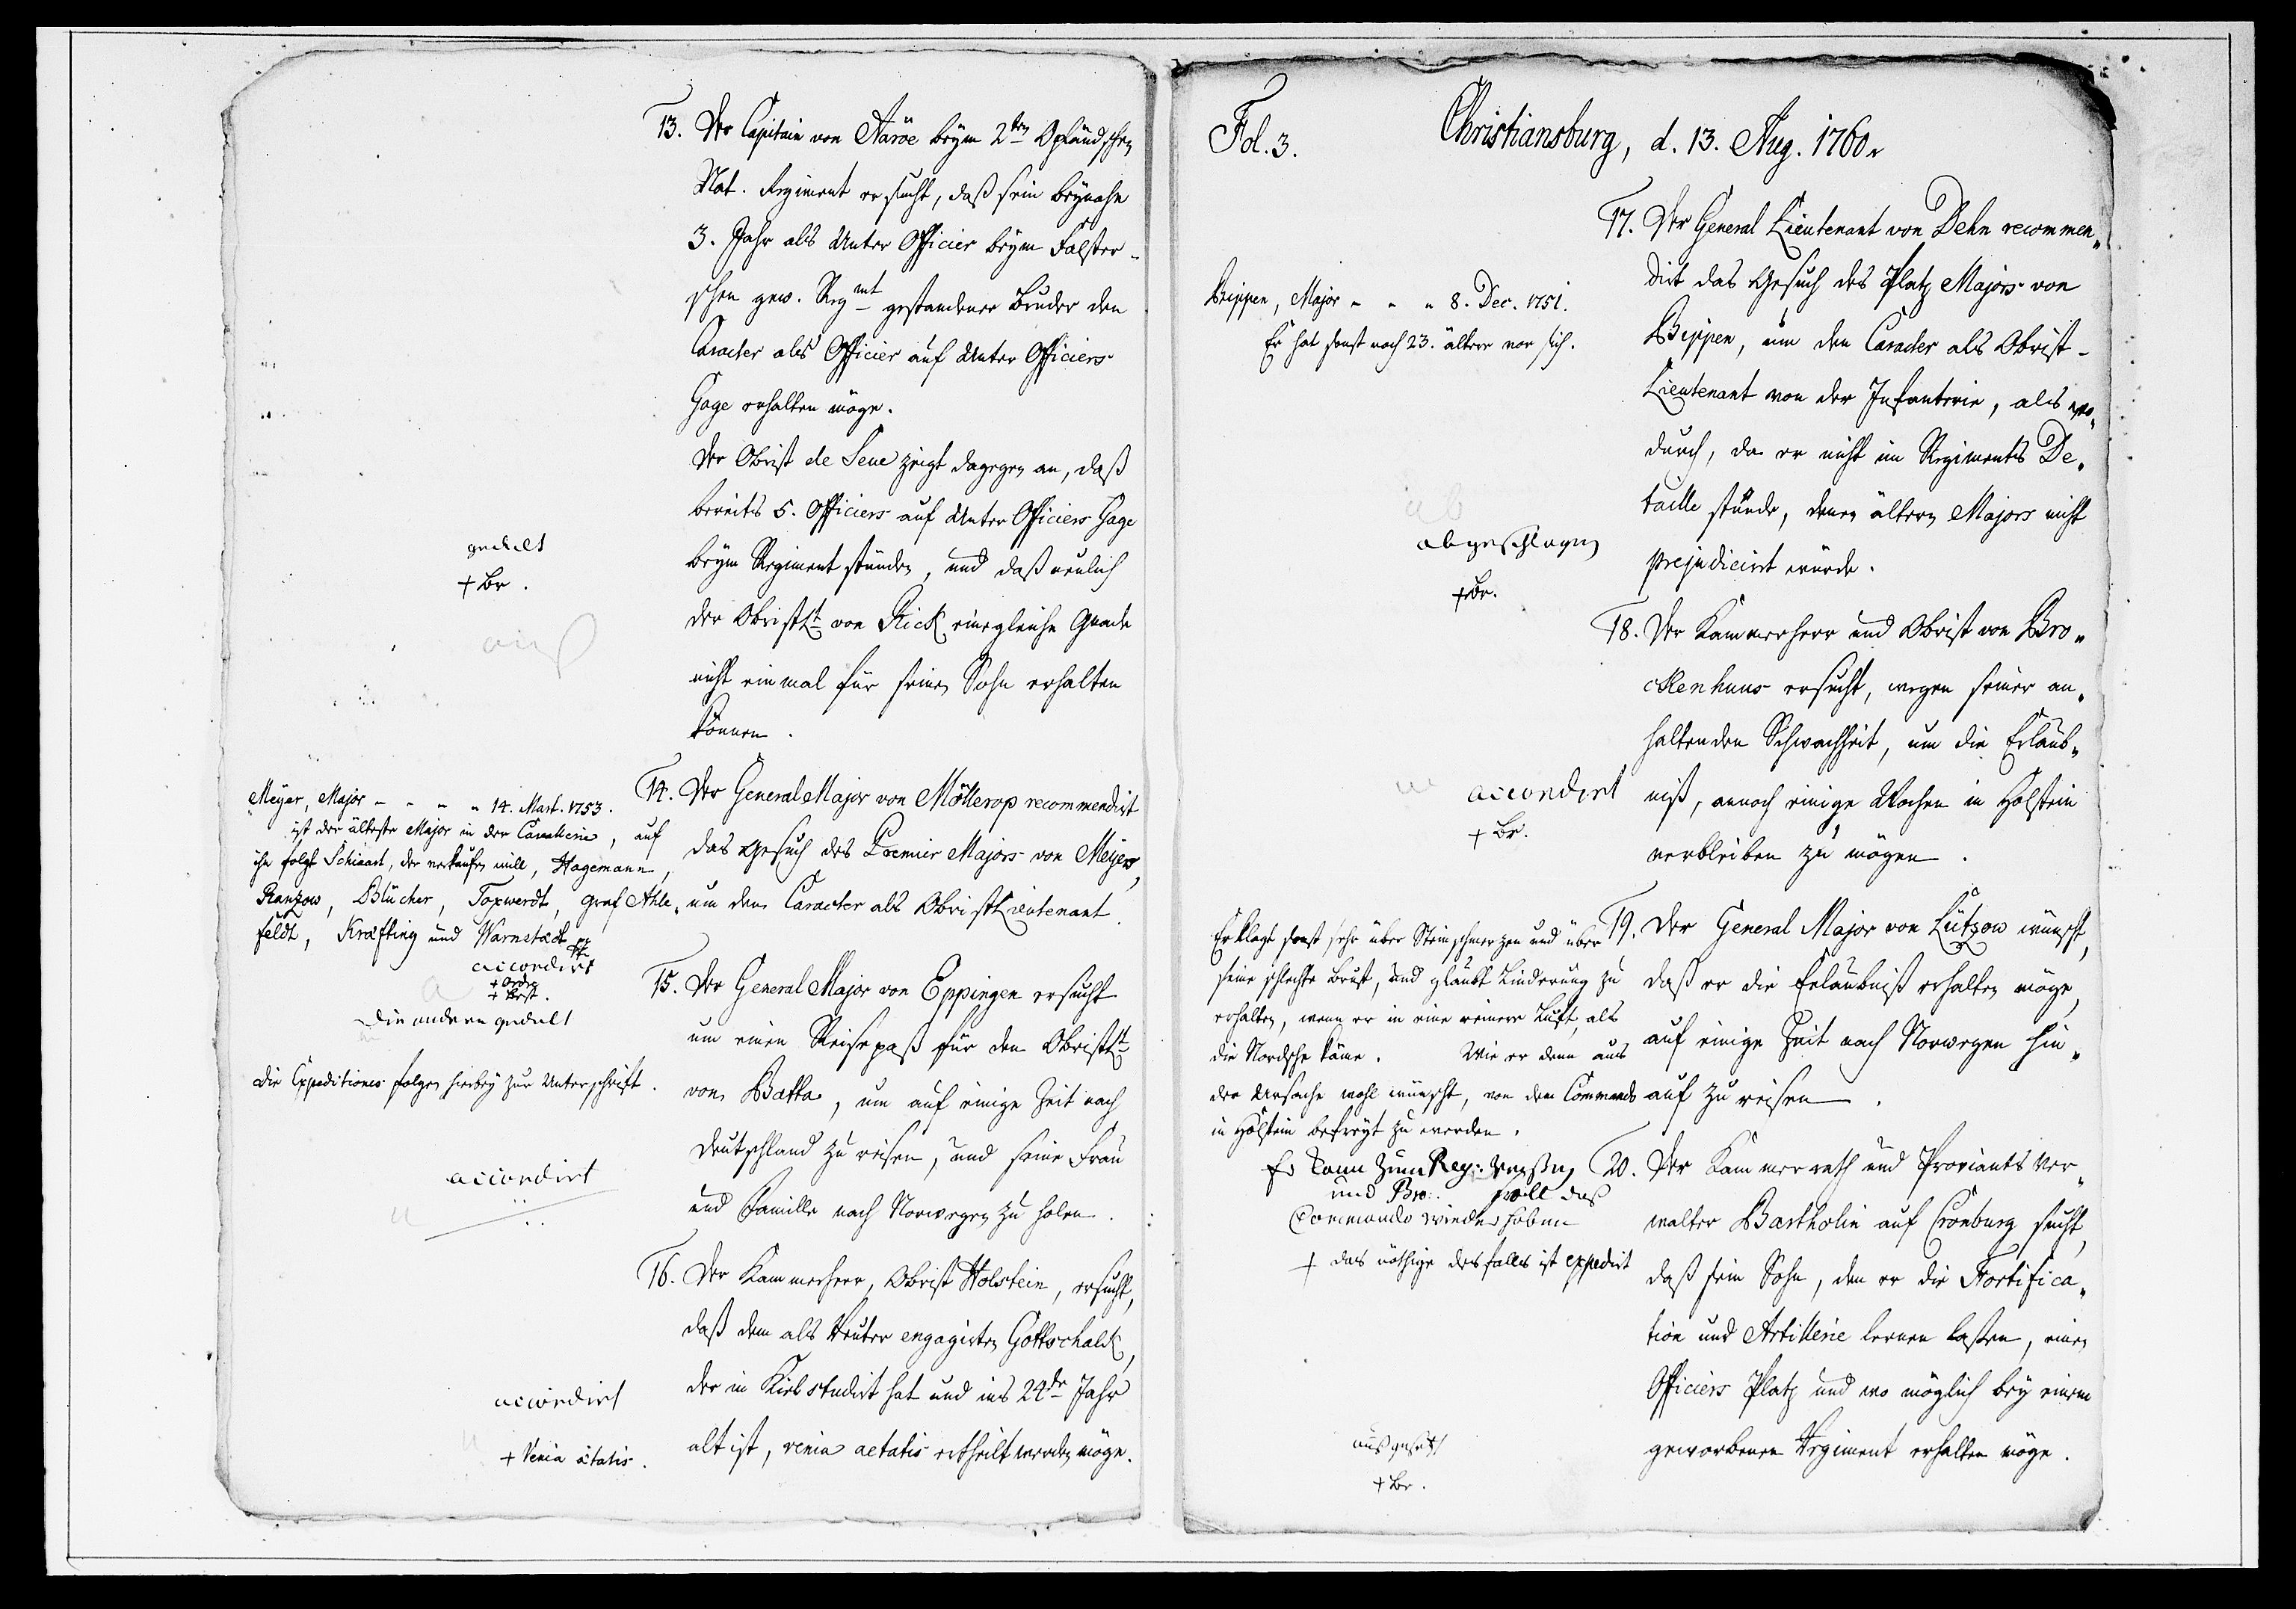 13. Der Capitain von Aaröe beym 2ten Opländschen
Nat. Regiment ersucht, daß sein beynahe
3. Jahr als Unter Officier beym Falster-
schen gew. Regmt gestandener Bruder den
Caracter als Officier auf Unter Officiers
Gage erhalten möge.
Der Obrist de Seue zeigt dagegen an, daß
bereits 5. Officiers auf Unter Officiers Gage
beym Regiment stünden, und daß neulich
der Obristlt von Rick eine gleiche Gnade
nicht einmal für seinen Sohn erhalten
können.
gedult
+ Br.
14. Der General Major von Möllerop recommendirt
das Gesuch des Premier Majors von Meyer,
um den Caracter als Obristlieutenant.
Meyer, Major - - - - 14. Mart. 1753.
ist der älteste Major in der Cavallerie, auf
ihn folgt Schinart, der verkaufen will, Hagemann,
Ranzow, Blücher, Toxwerdt, Graf Ahle-
feldt, Krafting und Warnstædt
accordirt
+ Ordre
+ Best.
die andern gedult
die Expeditiones folgen hierbey zur Unterschrift.
15. Der General Major von Eppingen ersucht
um einen Reisepaß für den Obristlt
von Batta, um auf einige Zeit nach
Deutschland zu reisen, und seine Frau
und Familie nach Norwegen zu holen.
accordirt
16. Der Kammerherr, Obrist Holstein, ersucht,
daß dem als Reuter engagirten Gottschalck,
der in Kiel studirt hat und ins 24te Jahr
alt ist, venia aetatis ertheilt werden möge.
accordirt
+ Venia ætatis.
Fol. 3.
Christiansburg, d. 13. Aug. 1760.
17. Der General Lieutenant von Dehn recommen-
dirt das Gesuch des Platz Majors von
Beippen, um den Caracter als Obrist-
Lieutenant von der Infanterie, als wo-
durch, da er nicht im Regiments De-
taille stünde, denen ältern Majors nicht
prejudicirt würde.
Beippen, Major - - - 8. Dec. 1751.
Er hat sonst noch 23. ältere vor sich.
abgeschlagen
+ Br.
18. Der Kammerherr und Obrist von Bro-
ckenhuus ersucht, wegen seiner an-
haltenden Schwachheit, um die Erlaub-
niß, annoch einige Wochen in Holstein
verbleiben zu mögen.
accordirt
+ Br.
19. Der General Major von Lützow wünscht,
daß er die Erlaubniß erhalten möge,
auf einige Zeit nach Norwegen hin-
auf zu reisen.
Er klagt sonst sehr über Steinschmerzen und über
seine schlechte Brust, und glaubt Linderung zu
erhalten, wenn er in eine reinere Luft, als
die Nordsche käme. Wie er denn aus
der Ursache wohl wünscht, von dem Commando
in Holstein befreyt zu werden.
Er kann zum Reg:
und Bro: soll das
Commando wieder haben
+ das nöthige desfalls ist expedirt
20. Der Kammerrath und Proviants Ver-
walter Bartholin auf Cronburg sucht,
daß sein Sohn, den er die Fortifica-
tion und Artillerie lernen lassen, einen
Officiers Platz und wo möglich bey einem
geworbenen Regiment erhalten möge.
ausgesetzt
+ Br.